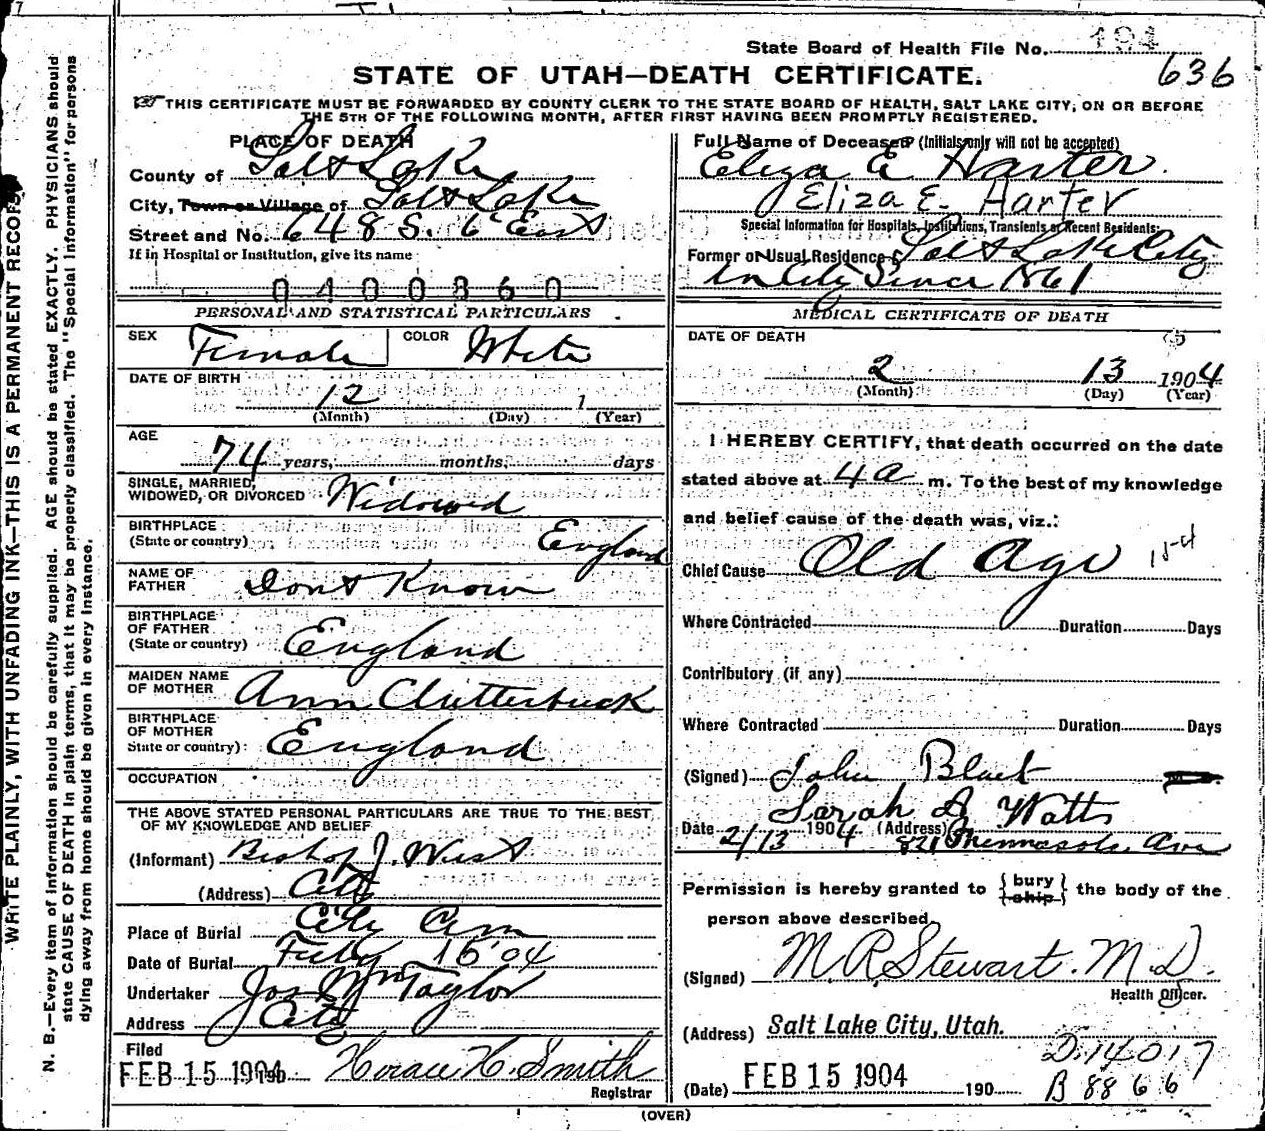 WRITE PLAINLY, WITH UNFADING INK—THIS IS A PERMANENT RECORD.
N. B.—Every item of information should be carefully supplied. AGE should be stated EXACTLY. PHYSICIANS should
state CAUSE OF DEATH in plain terms, that it may be properly classified. The "Special Information" for persons
dying away from home should be given in every instance.
State Board of Health File No. 194
636
STATE OF UTAH—DEATH CERTIFICATE.
THIS CERTIFICATE MUST BE FORWARDED BY COUNTY CLERK TO THE STATE BOARD OF HEALTH, SALT LAKE CITY, ON OR BEFORE
THE 5TH OF THE FOLLOWING MONTH, AFTER FIRST HAVING BEEN PROMPTLY REGISTERED.
PLACE OF DEATH
County of Salt Lake
City, Town or Village of Salt Lake
Street and No. 648 S. 6 East
If in Hospital or Institution, give its name
0400860
PERSONAL AND STATISTICAL PARTICULARS
SEX Female COLOR White
DATE OF BIRTH
12 1
(Month) (Day) (Year)
AGE
74 years, months, days
SINGLE, MARRIED,
WIDOWED, OR DIVORCED Widowed
BIRTHPLACE
(State or country) England
NAME OF
FATHER Dont Know
BIRTHPLACE
OF FATHER
(State or country) England
MAIDEN NAME
OF MOTHER Ann Clutterbuck
BIRTHPLACE
OF MOTHER
State or country) England
OCCUPATION
THE ABOVE STATED PERSONAL PARTICULARS ARE TRUE TO THE BEST
OF MY KNOWLEDGE AND BELIEF
(Informant) Bishop J. West
(Address) City
Place of Burial City Cem
Date of Burial Feby 16 04
Undertaker Jos Wm Taylor
Address City
Filed
FEB 15 1904 190 Horace H. Smith
Registrar
Full Name of Deceased (Initials only will not be accepted)
Eliza E Harter.
Eliza E. Harter
Special Information for Hospitals, Institutions, Transients or Recent Residents:
Former or Usual Residence Salt Lake City
In City Since 1861
MEDICAL CERTIFICATE OF DEATH
DATE OF DEATH
2 13 1904
(Month) (Day) (Year)
I HEREBY CERTIFY, that death occurred on the date
stated above at 4 a m. To the best of my knowledge
and belief cause of the death was, viz.:
Chief Cause Old Age 154
Where Contracted Duration Days
Contributory (if any)
Where Contracted Duration Days
(Signed) John
Sarah A Watts
Date 2/13 1904 (Address) 821 Ave
Permission is hereby granted to { bury
ship } the body of the
person above described.
(Signed) M R Stewart. M.D.
Health Officer.
(Address) Salt Lake City, Utah.
D. 14017
(Date) FEB 15 1904 190
B 8866
(OVER)